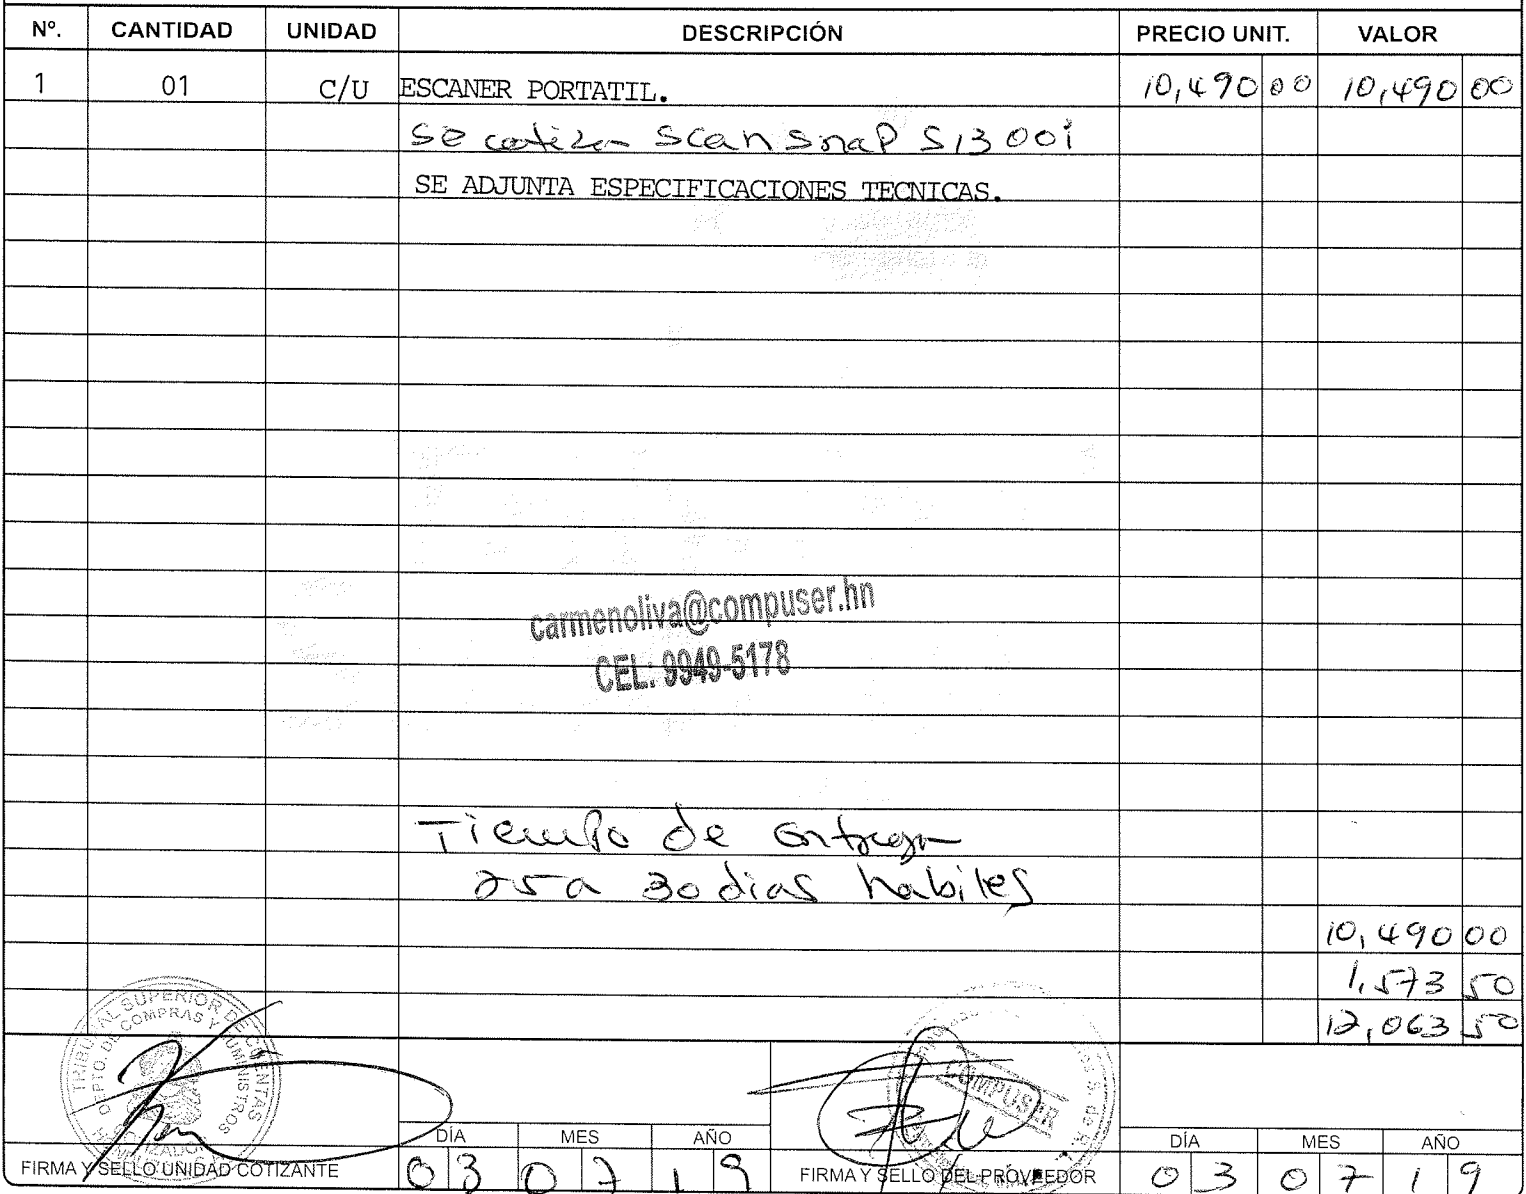 Nº. CANTIDAD UNIDAD DESCRIPCIÓN PRECIO UNIT. VALOR
1 01 C/U ESCANER PORTATIL. 10,490 00 10,490 00
Se cotiza ScanSnap S1300i
SE ADJUNTA ESPECIFICACIONES TECNICAS.
carmenoliva@compuser.hn
CEL: 9949-5178
Tiempo de entrega
25 a 30 dias habiles
10,490 00
1,573 50
12,063 50
TRIBUNAL SUPERIOR DE CUENTAS
DEPTO. DE COMPRAS Y SUMINISTROS
COMPUSER
S. de R.L.
DÍA MES AÑO DÍA MES AÑO
FIRMA Y SELLO UNIDAD COTIZANTE 03 07 19 FIRMA Y SELLO DEL PROVEEDOR 03 07 19